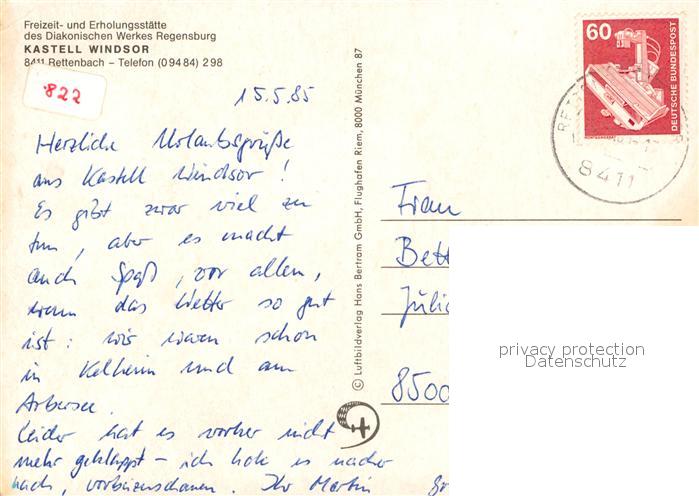 Freizeit- und Erholungsstätte
des Diakonischen Werkes Regensburg
KASTELL WINDSOR
8411 Rettenbach – Telefon (0 94 84) 2 98
822
15.5.85
Herzliche Urlaubsgrüße
aus Kastell Windsor!
Es gibt zwar viel zu
tun, aber es macht
auch Spaß, vor allem,
wenn das Wetter so gut
ist: wir waren schon
in Kelheim und am
Arbersee.
Leider hat es vorher nicht
mehr geklappt – ich hole es nachher
nach, vorbeizuschauen. Ihr Martin
© Luftbildverlag Hans Bertram GmbH, Flughafen Riem, 8000 München 87
60
DEUTSCHE BUNDESPOST
8411
Frau
Bett
Julia
8500
privacy protection
Datenschutz